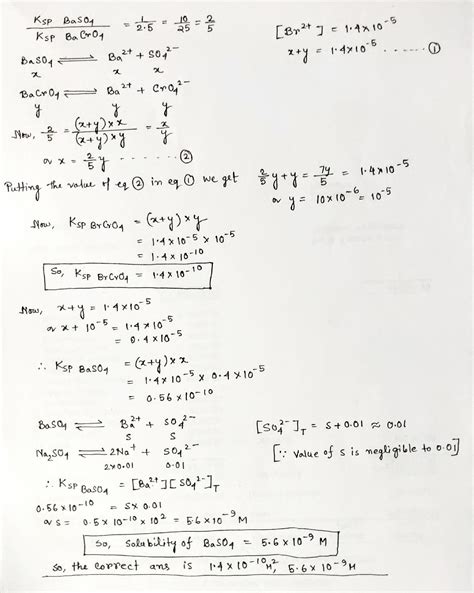 Ksp BaSO4 / Ksp BaCrO4 = 1/2.5 = 10/25 = 2/5
[Br2+] = 1.4×10-5
x+y = 1.4×10-5 ...... ①
BaSO4 ⇌ Ba2+ + SO42-
x x x
BaCrO4 ⇌ Ba2+ + CrO42-
y y y
Now, 2/5 = (x+y)×x / (x+y)×y = x/y
or x = 2/5 y ...... ②
Putting the value of eq ② in eq ① we get 2/5 y + y = 7y/5 = 1.4×10-5
or y = 10×10-6 = 10-5
Now, Ksp BrCrO4 = (x+y)×y
= 1.4×10-5 × 10-5
= 1.4×10-10
So, Ksp BrCrO4 = 1.4×10-10
Now, x+y = 1.4×10-5
or x + 10-5 = 1.4×10-5
= 0.4×10-5
∴ Ksp BaSO4 = (x+y)×x
= 1.4×10-5 × 0.4×10-5
= 0.56×10-10
BaSO4 ⇌ Ba2+ + SO42-
S S
[SO42-]T = S+0.01 ≈ 0.01
Na2SO4 ⇌ 2Na+ + SO42-
2×0.01 0.01
[∵ value of S is negligible to 0.01]
∴ Ksp BaSO4 = [Ba2+][SO42-]T
0.56×10-10 = S×0.01
or S = 0.5×10-10×102 = 5.6×10-9 M
So, Solubility of BaSO4 = 5.6×10-9 M
So, the correct ans is 1.4×10-10M2, 5.6×10-9M